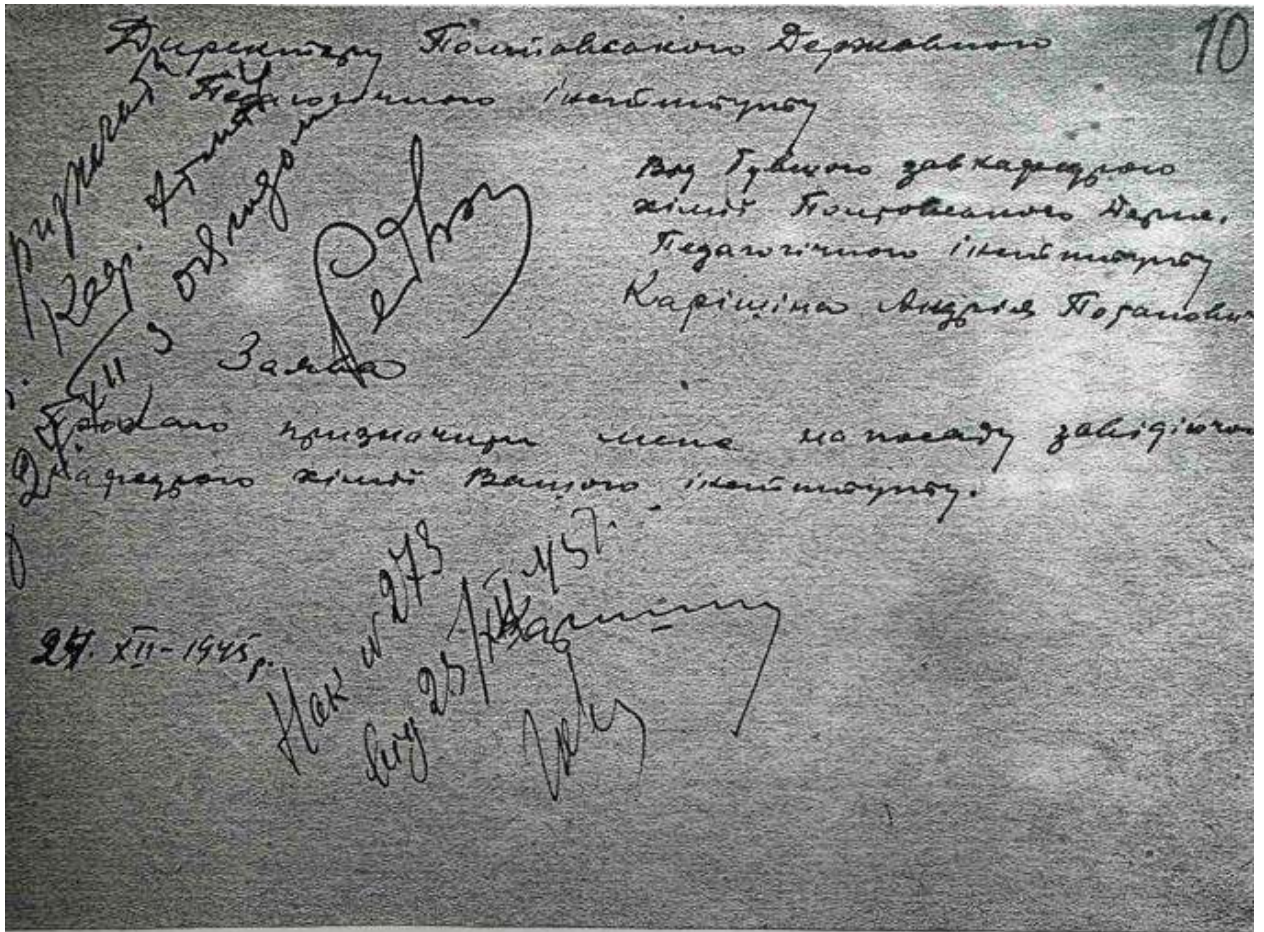 10
Директору Полтавського Державного
Педагогічного інституту
Від бувшого завкафедрою
хімії Полтавського Держ.
Педагогічного інституту
Карішина Андрія Потапович
Заява
Прохаю призначити мене на посаду завідуючого
кафедрою хімії Вашого інституту.
24. XII-1945 р.
Нак № 273
від 25/XII 45 г.